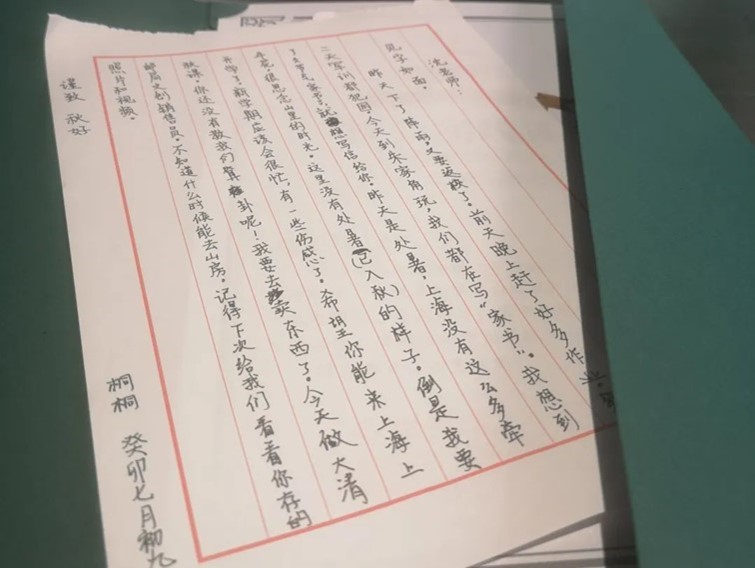 沈老师：
见字如面。
昨天下了阵雨，又要返校了。前天晚上赶了好多作业，
二天军训都犯困。今天到朱家角玩，我们都在写“家书”。我想到
家书了，就想写信给你。昨天是处暑，上海没有这么多牵
牛花，很思念山里的时光。这里没有处暑(已入秋)的样子。倒是我要
开学了，新学期应该会很忙，有一些伤感了。希望你能来上海上
秋课，你还没有教我们算卦呢！我要去卖东西了。今天做大清
邮局文创销售员。不知道什么时候能去山房。记得下次给我们看看你存的
照片和视频。
谨致 秋好
桐桐 癸卯七月初九